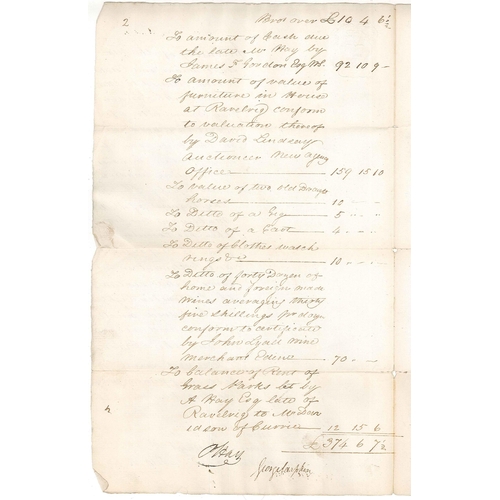 2
Brot over £10 4 6½
To amount of Cash due
the late Mr Hay by
James F Gordon Esq WS. 92 10 9 -
To amount of value of
furniture in House
at Ravelrig conform
to valuation thereof
by David Lindsay
Auctioneer New Agency
Office 159 15 10
To value of two old Draught
horses 12 - -
To Ditto of a Gig 5 - -
To Ditto of a Cart 4 - -
To Ditto of Clothes watch
rings &c 10 - -
To Ditto of forty Dozen of
home and foreign made
Wines averaging thirty
five shillings pr dozn
conform to certificate
by John Lyall Wine
Merchant Edinr 70 - -
To balance of Rent of
Grass Parks let by
A Hay Esq late of
Ravelrig to Mr Dav
idson of Currie 12 15 6
£ 374 6 7½
Hay
George